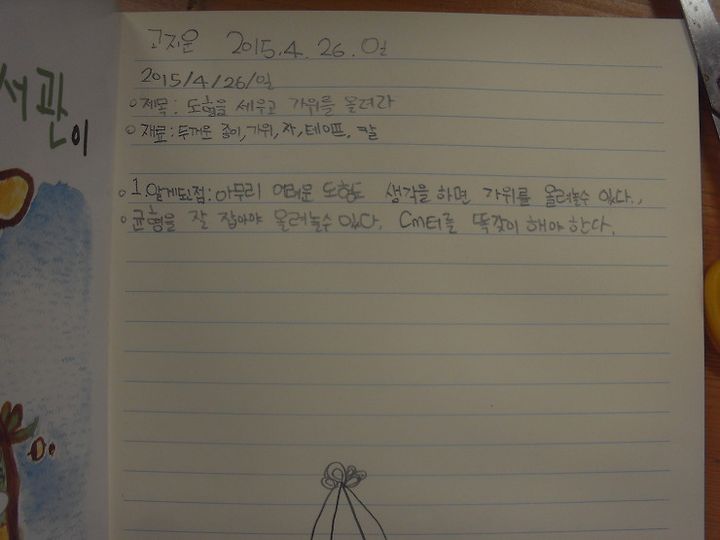 서관이
고지운 2015.4.26.일
2015/4/26/일
제목: 도형을 세우고 가위를 올려라
재료: 두꺼운 종이, 가위, 자, 테이프, 칼
1. 알게되점: 아무리 어려운 도형도 생각을 하면 가위를 올려놀수 있다.,
균형을 잘 잡아야 올려놀수 있다. Cm터를 똑같이 해야 한다.